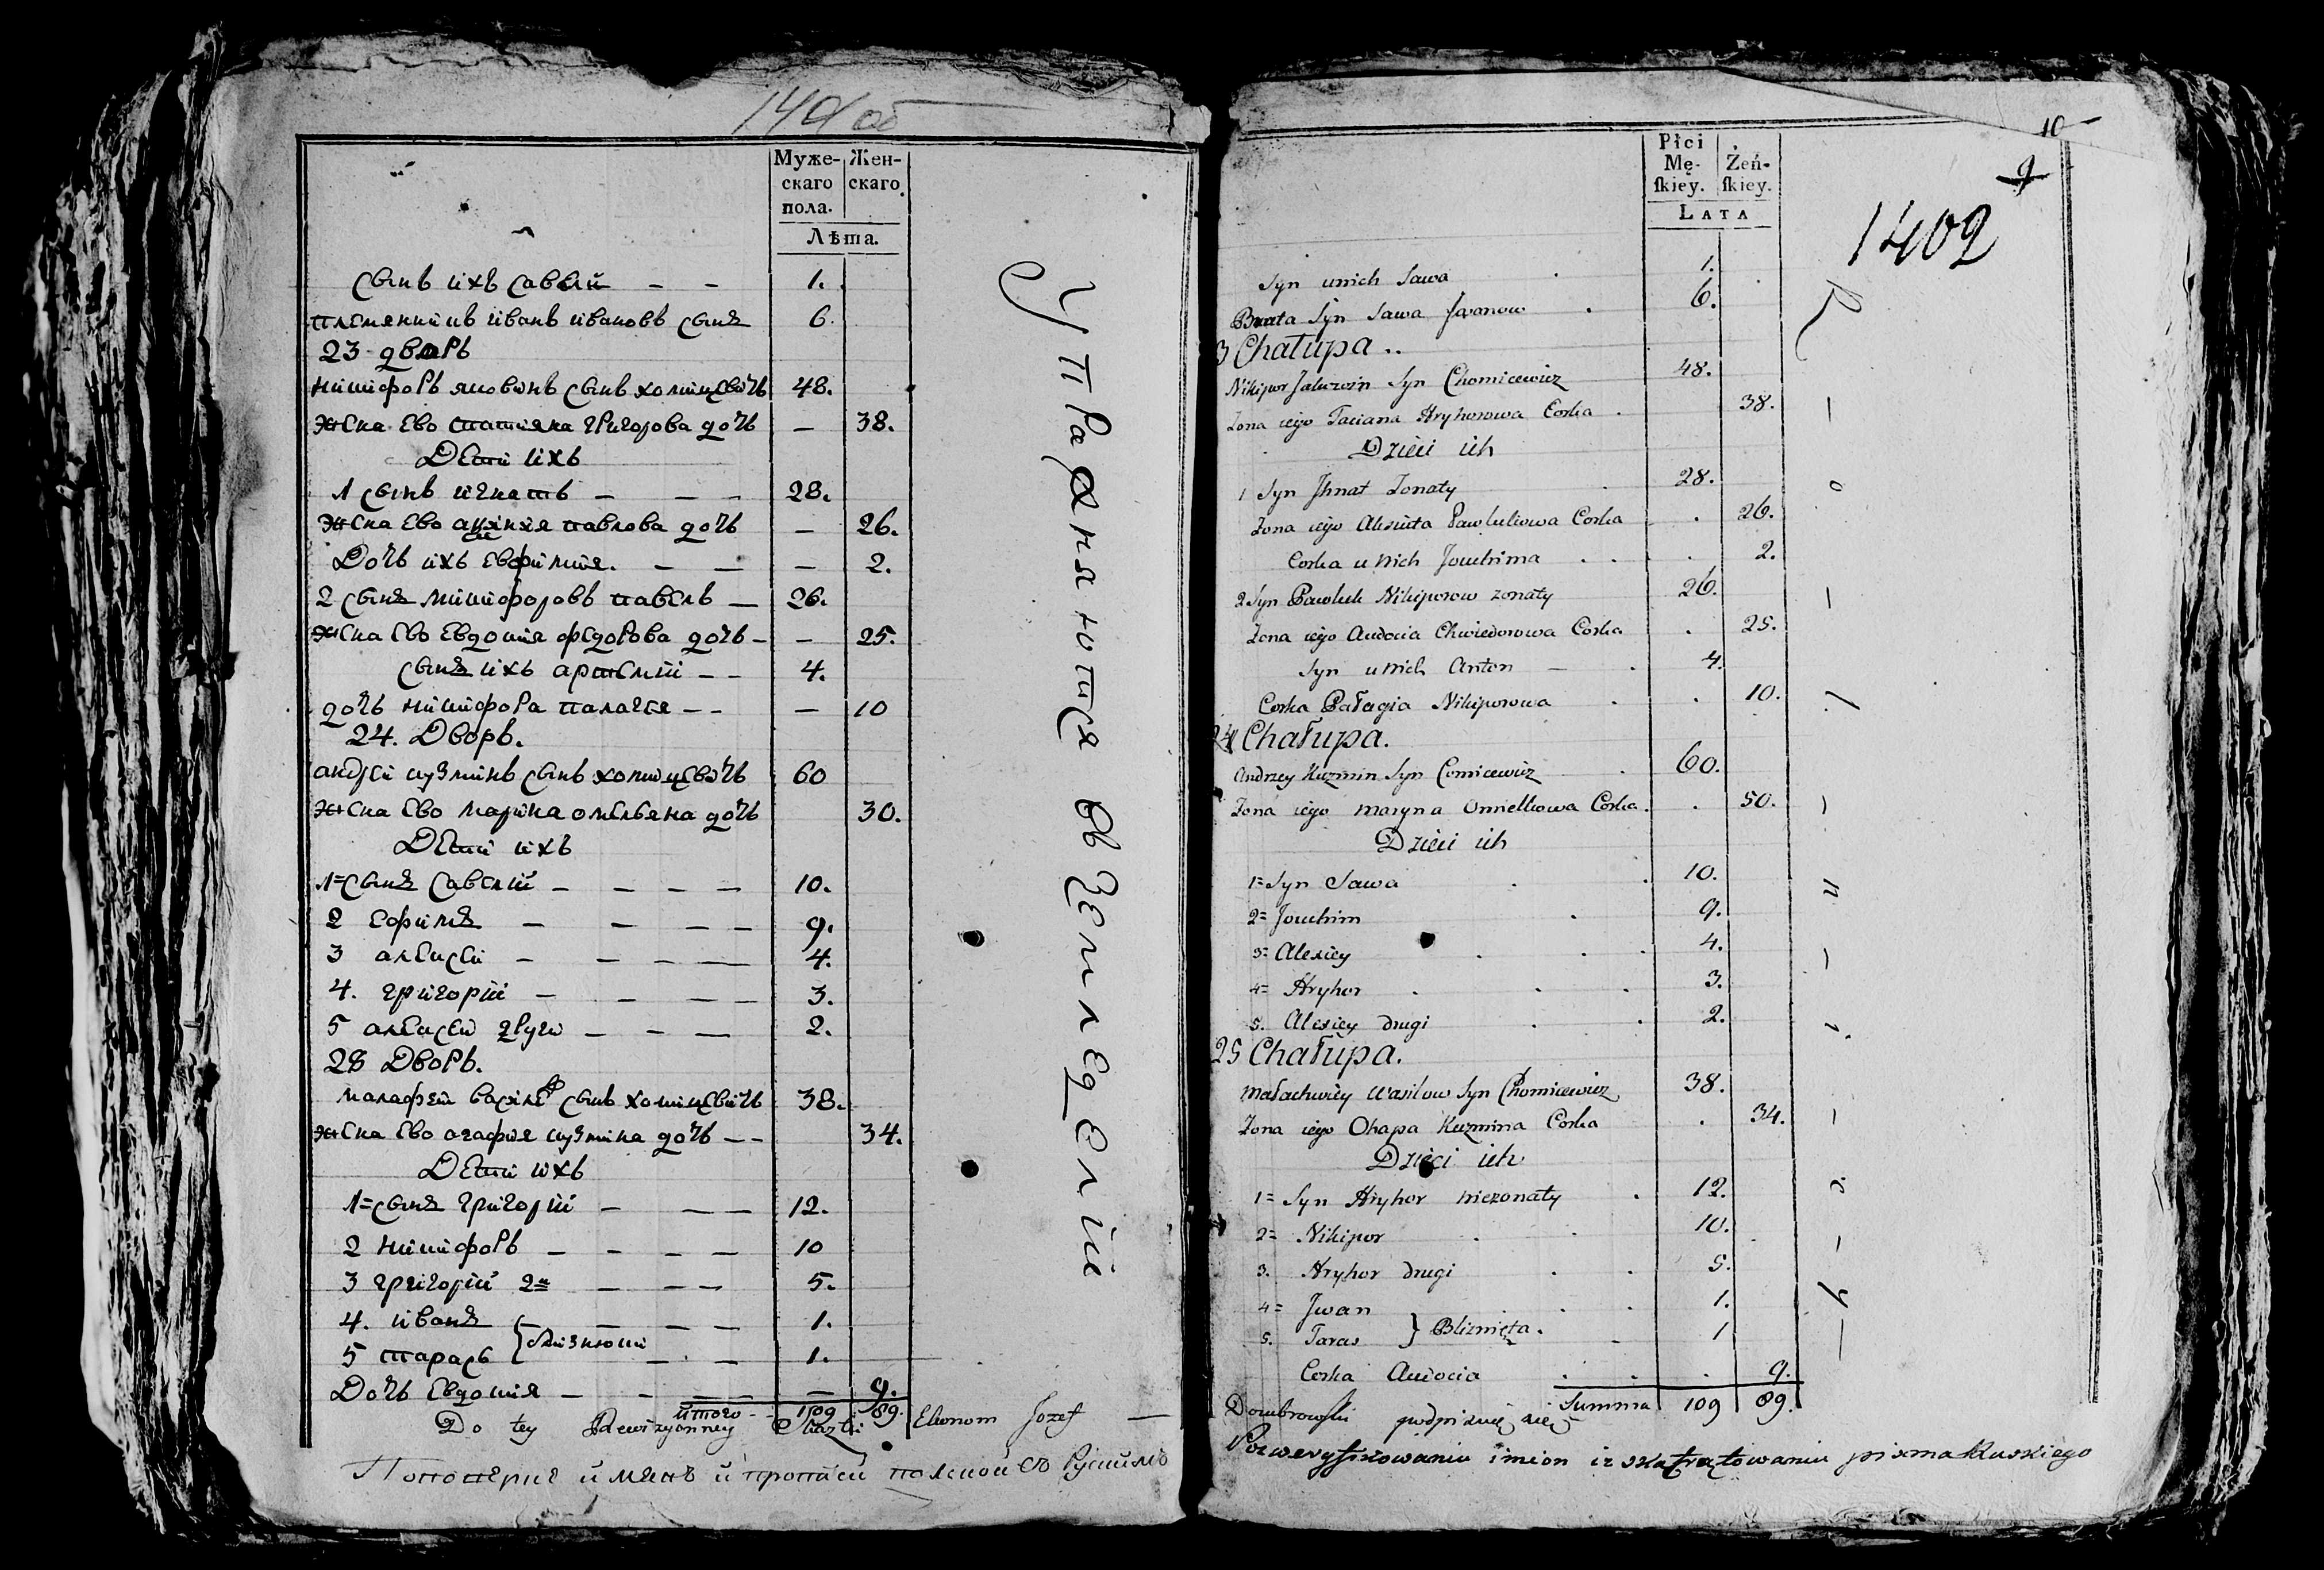 Муже-
скаго
пола.
Жен-
скаго.
Лѣта.
сынъ ихъ савелй — — 1.
племянникъ иванъ ивановъ сынъ 6.
23 дворъ
никифоръ яковлевъ сынъ хомицевичъ 48.
жена ево татияна григорова дочь — 38.
Дети ихъ
1 сынъ игнатъ — — — 28.
жена ево павлова дочь — 26.
Дочь ихъ евфимия. — — — 2.
2 сынъ никифоровъ павелъ — 26.
жена ево евдокия федорова дочь — — 25.
сынъ ихъ артемий — — 4.
дочь никифора палагея — — — 10
24. Дворъ.
андрей кузминъ сынъ хомицевичъ 60
жена ево марина омельяна дочь 30.
Дети ихъ
1= сынъ савелий — — — — 10.
2 ефимъ — — — — 9.
3 алексей — — — — 4.
4. григорий — — — — 3.
5 алексей другой — — — 2.
28 Дворъ.
малафей василев сынъ хомицевичъ 38.
жена ево агафия кузмина дочь — — 34.
Дети ихъ
1= сынъ григорий — — — 12.
2 никифоръ — — — — 10
3 григорий 2й — — — 5.
4. иванъ — — — — 1.
близнюки
5 тарасъ — — 1.
Дочь евдокия — — — — — 9.
итого - - 109 89.
Упражняются въ земледелии
Do tey Rewizyonney Skazki Ekonom Jozef —
Płci
Mę-
skiey.
Żeń-
skiey.
LATA
10
9
1402
Syn u nich Sawa 1.
Brata Syn Sawa Jwanow 6.
3 Chałupa..
Nikipor Jakowin Syn Chomicewicz 48.
Zona iego Taciana Hryhorowa Corka 38.
Dzieci ich
1 Syn Jhnat Zonaty 28.
Zona iego Pawlukowa Corka 26.
Corka u nich Jouchima 2.
2 Syn Pawluk Nikiporow zonaty 26.
Zona iego Audocia Chwiedorowa Corka 25.
Syn u nich Anton — 4.
Corka Pałagia Nikiporowa 10.
24 Chałupa.
Andrzey Kuzmin Syn Comicewicz 60.
Zona iego Maryna Omielkowa Corka. 50.
Dzieci ich
1= Syn Sawa 10.
2= Jouchim 9.
3= Alexiey 4.
4= Hryhor 3.
5. Alexiey drugi 2.
25 Chałupa.
Małachwiey Wasilow Syn Chomicewicz 38.
Zona iego Ohapa Kuzmina Corka 34.
Dzieci ich
1= Syn Hryhor niezonaty 12.
2= Nikipor 10.
3. Hryhor drugi 5.
4= Jwan 1.
5. Taras } Bliznięta. 1
Corka Audocia 9.
Summa 109 89.
R — o — l. — n — i. — c — y —
Dombrowski podpisuię się
Po weryfikowaniu imion i z skątrątowaniu pisma Ruskiego